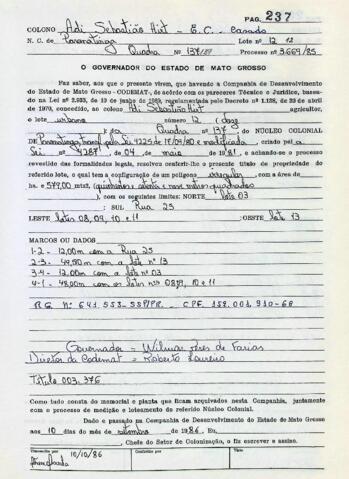 PAG. 237
COLONO Adi Sebastião Hirt - E.C. - Casado
N. C. de Paranatinga Lote n° 12
Quadra n° 137 Processo n° 3.669/85
O GOVERNADOR DO ESTADO DE MATO GROSSO
Faz saber, aos que o presente virem, que havendo a Companhia de Desenvolvimento
do Estado de Mato Grosso - CODEMAT-, de acôrdo com os pareceres Técnico e Jurídico, basea-
do na Lei n° de junho de regulamentada pelo Decreto n° 1.138, de de abril
de 1970, concedido, ao colono Adi Sebastião Hirt agricultor,
o lote urbano número 12 (doze
Quadra n° 137 DO NÚCLEO COLONIAL
DE Paranatinga, pela Lei 4225 de e modificada, criado pela
Lei n° 4287 de 04 de maio de 1981, e achando-se o processo
revestido das formalidades legais, resolveu conferir o presente título de propriedade do
referido lote, o qual tem a configuração de um polígono irregular, com a área de
hs. e 579,00 mts2, (quinhentos e setenta e nove metros quadrados
), com os seguintes limites: NORTE lote 03
: SUL Rua 25
LESTE lotes 08, 09, 10 e 11 : OESTE lote 13
MARCOS OU DADOS
1-2 - 12,00m com a Rua 25
2-3 - com o lote n° 13
3-4 - 12,00m com o lote n° 03
4-1 - 48,00m com os lotes n°s 08, 09, 10 e 11
RG. N° 641.553-SSP/PR. - CPF. 158.001.910-68
Governador = Wilmar Peres de Farias
Diretor da Codemat = Roberto Loureiro
Titulo 003.376
Como tudo consta do memorial e planta que ficam arquivados nesta Companhia, juntamente
com o processo de medição e loteamento do referido Núcleo Colonial.
Dado e passado na Companhia de Desenvolvimento do Estado de Mato Grosso
aos 10 dias do mês de setembro de 1986. Eu,
, Chefe do Setor de Colonização, o fiz escrever e assino.
10/10/86
Conferido por
Visto